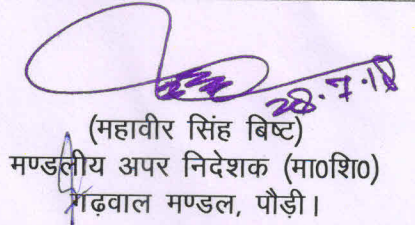 28.7.18
(महावीर सिंह बिष्ट)
मण्डलीय अपर निदेशक (मा०शि०)
गढ़वाल मण्डल, पौड़ी।